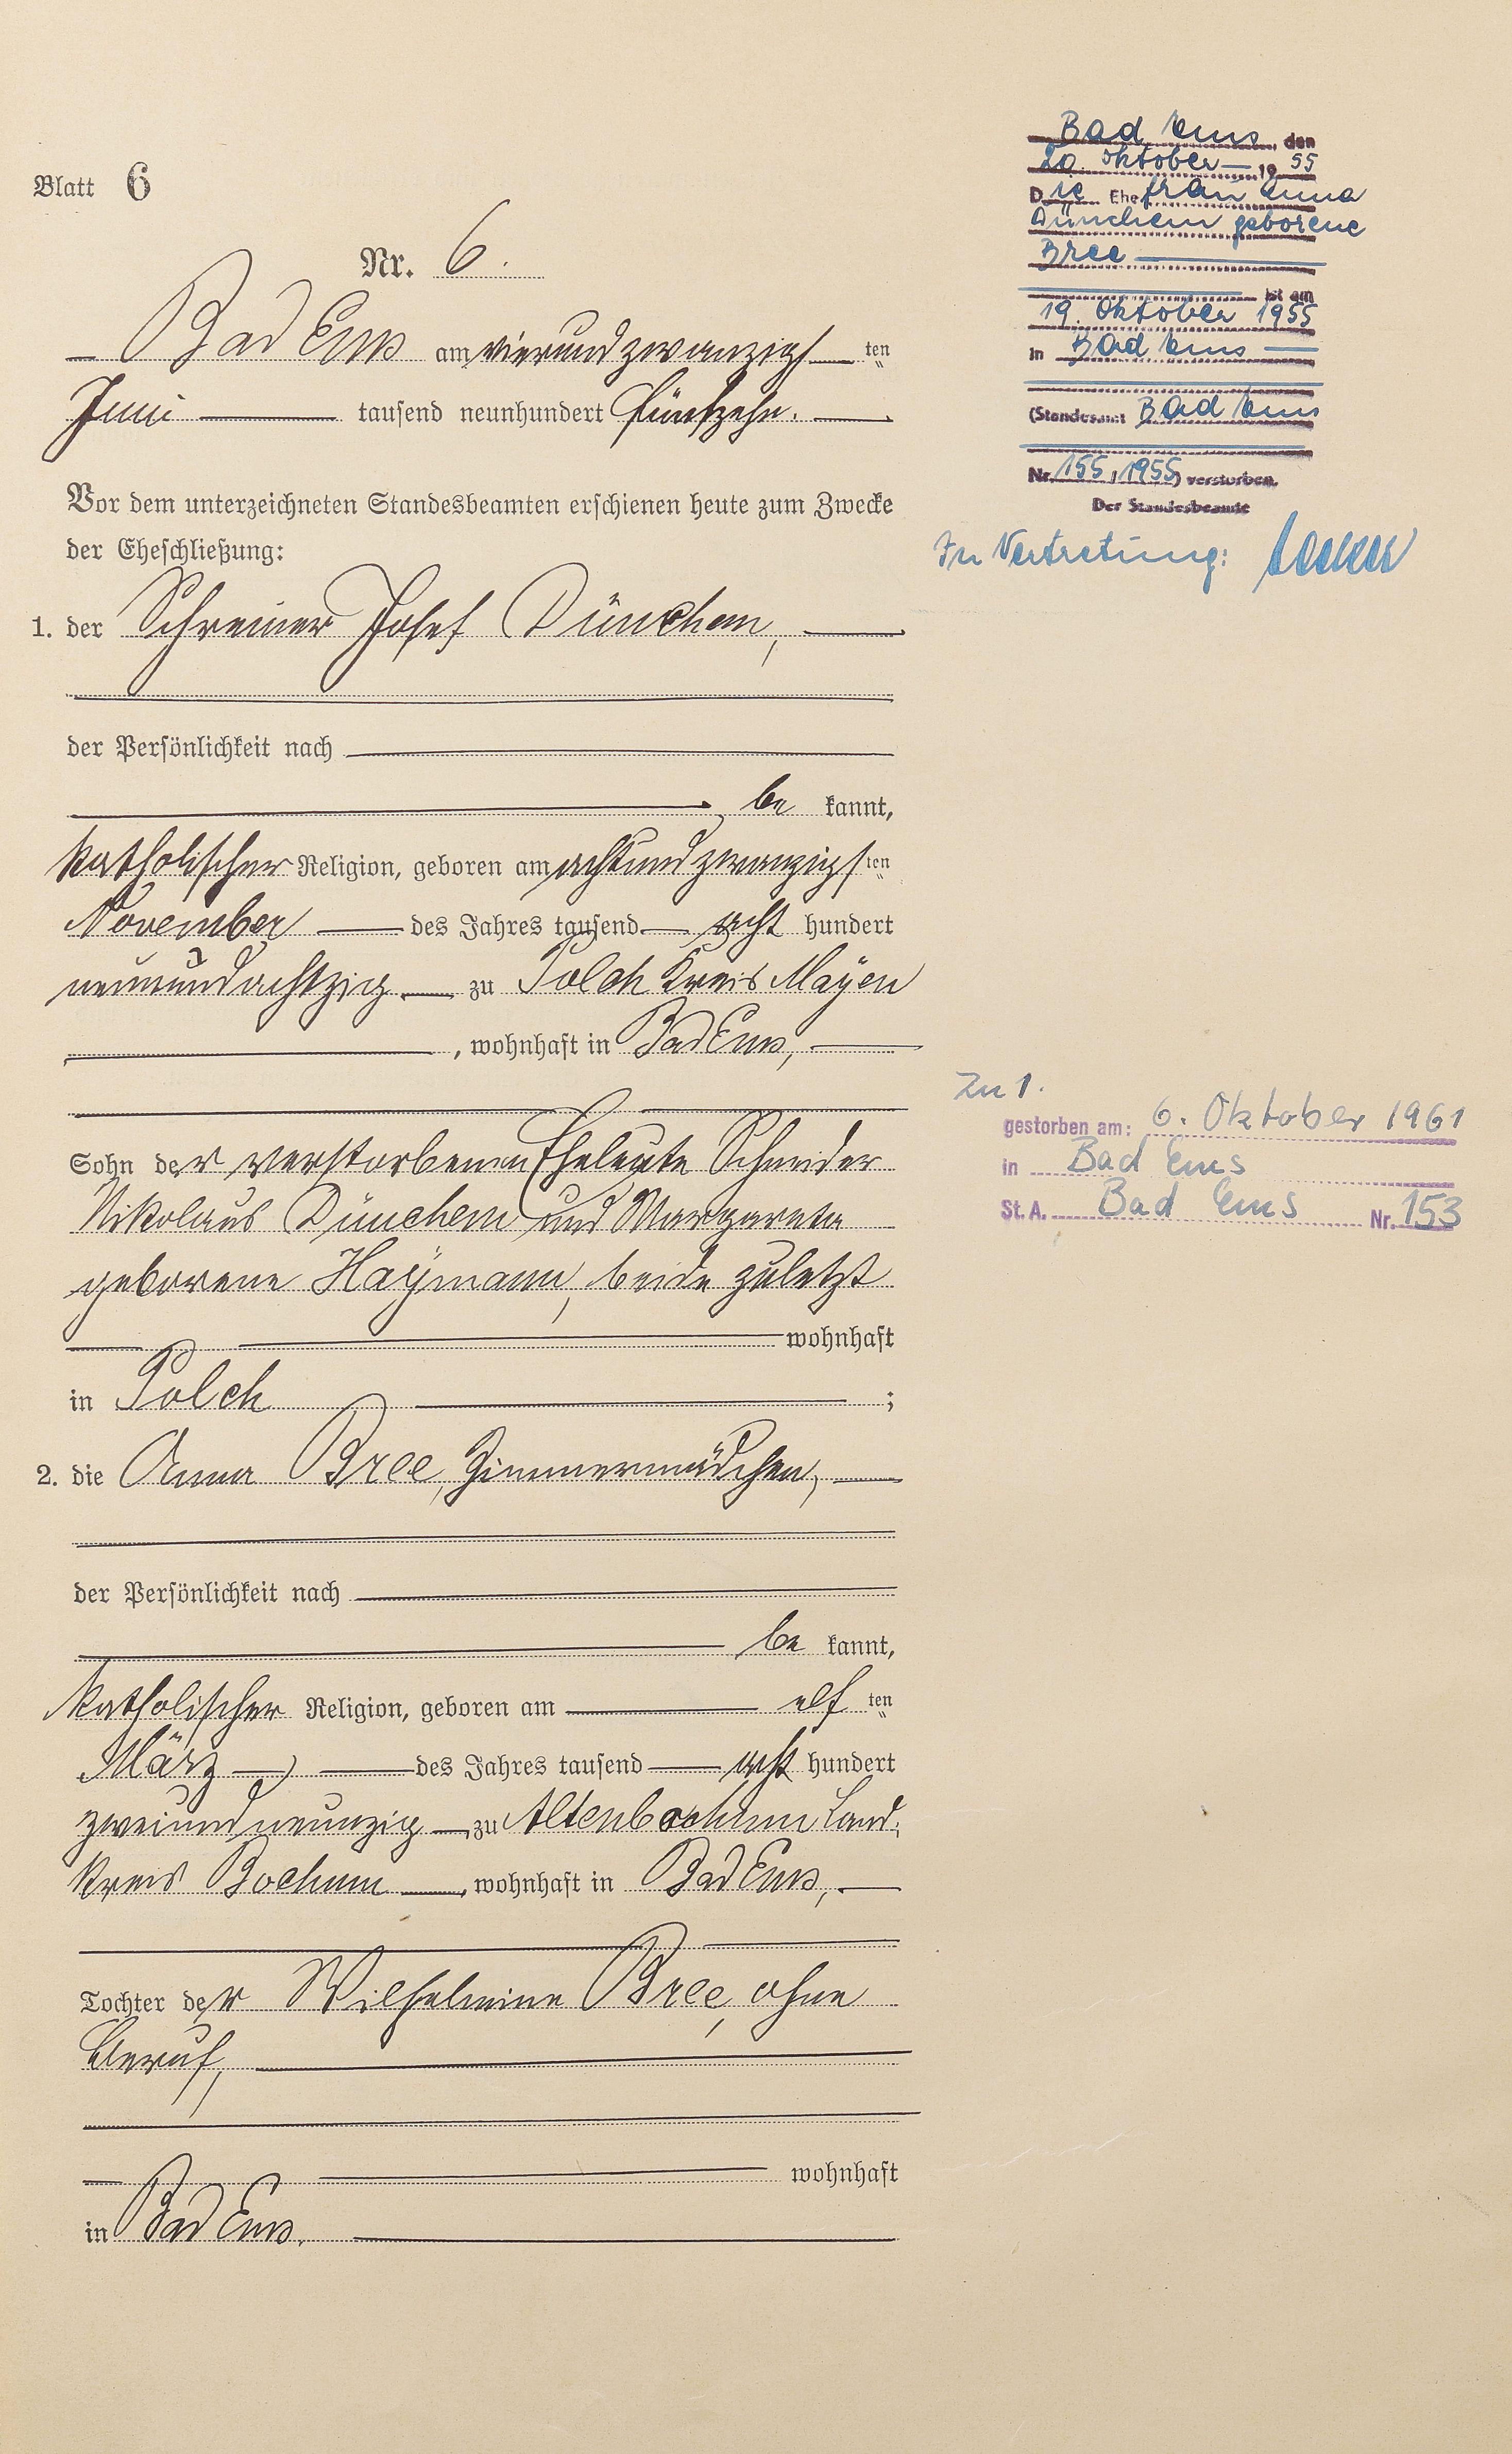 Blatt 6
Nr. 6.
Bad Ems am vierundzwanzigsten
Juni tausend neunhundert fünfzehn.
Vor dem unterzeichneten Standesbeamten erschienen heute zum Zwecke
der Eheschließung:
1. der Schreiner Josef Dünchem,
der Persönlichkeit nach
be kannt,
katholischer Religion, geboren am achtundzwanzigsten
November des Jahres tausend acht hundert
neunundachtzig zu Polch Kreis Mayen
, wohnhaft in Bad Ems,
Sohn der verstorbenen Eheleute Schneider
Nikolaus Dünchem und Margareta
geborene Haymann, beide zuletzt
wohnhaft
in Polch ;
2. die Anna Bree, Zimmermädchen,
der Persönlichkeit nach
be kannt,
katholischer Religion, geboren am elften
März des Jahres tausend acht hundert
zweiundneunzig, zu Altenbochum Land-
kreis Bochum, wohnhaft in Bad Ems,
Tochter der Wilhelmine Bree, ohne
Beruf,
wohnhaft
in Bad Ems.
Bad Ems, den
20. Oktober 1955
Die Ehefrau Anna
Dünchem geborene
Bree
ist am
19. Oktober 1955
in Bad Ems
(Standesamt Bad Ems
Nr. 155/1955) verstorben.
Der Standesbeamte
In Vertretung:
Zu 1.
gestorben am: 6. Oktober 1961
in Bad Ems
St. A. Bad Ems Nr. 153